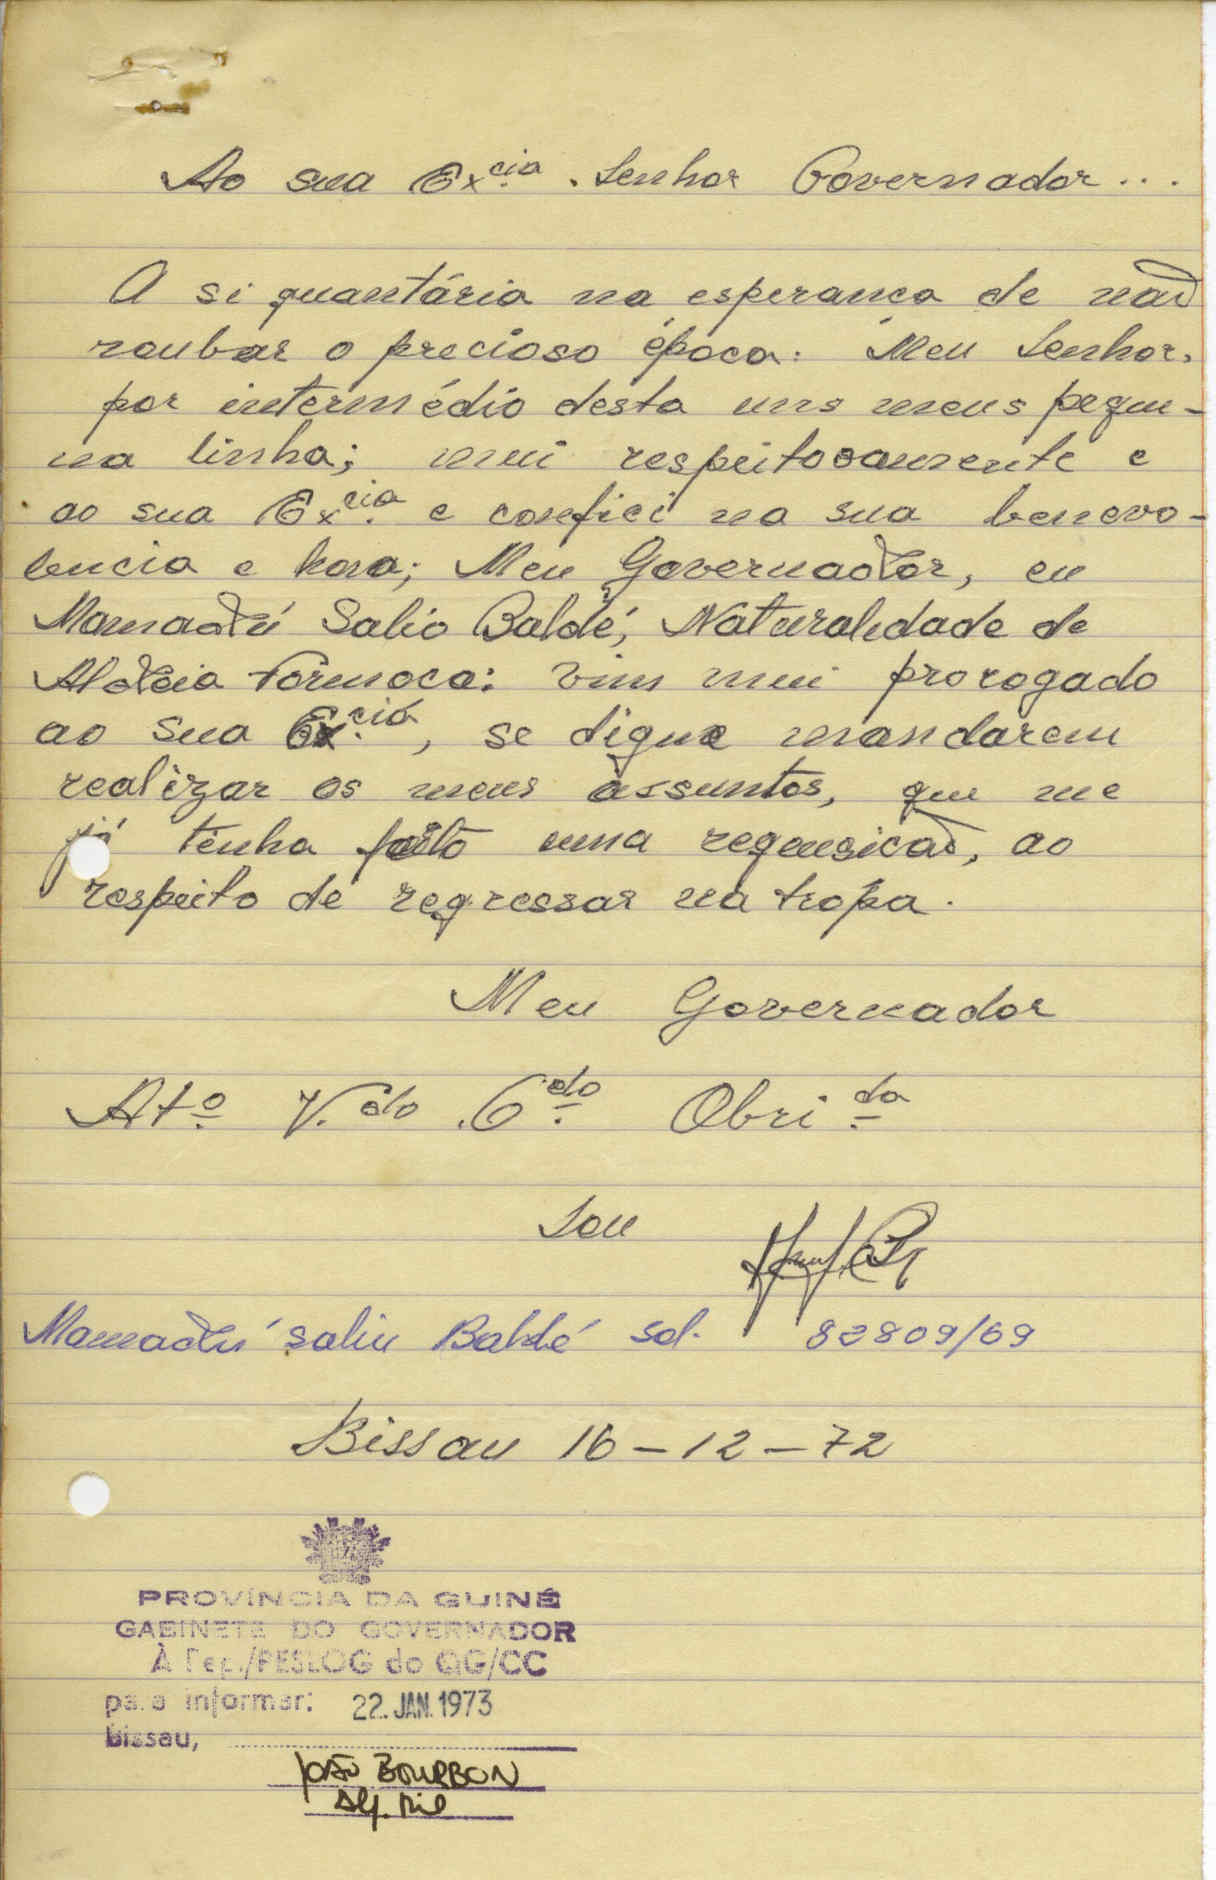 Ao sua Excia. Senhor Governador...
A si quantária na esperança de não
roubar o precioso época. Meu Senhor,
por intermédio desta uns meus peque-
na linha; mui respeitosamente e
ao sua Excia. e confiei na sua benevo-
lencia e hora; Meu Governador, eu
Mamadú Salio Baldé, Naturalidade de
Aldeia Formoca: vim mui prorogado
ao sua Excia., se digne mandarem
realizar os meus assuntos, que me
já tenha feito uma requesicão, ao
respeito de regressar na tropa.
Meu Governador
Ato V.do G.do Obrida
Sou
Mamadú saliu Baldé sol. 82809/69
Bissau 16-12-72
PROVÍNCIA DA GUINÉ
GABINETE DO GOVERNADOR
À Rep./PESLOG do QG/CC
para informar:
22. JAN. 1973
Bissau,
JOÃO BOURBON
Alf. Mil